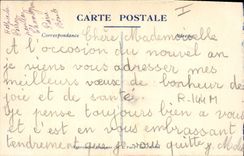 CARTE POSTALE
Correspondance
Chère Mademoiselle
A l'occasion du nouvel an
je viens vous adresser mes
meilleurs vœux de bonheur
de joie et de santé.
R-144 M
Je pense toujours bien a vous
et c'est en vous embrassant
tendrement que je vous quitte